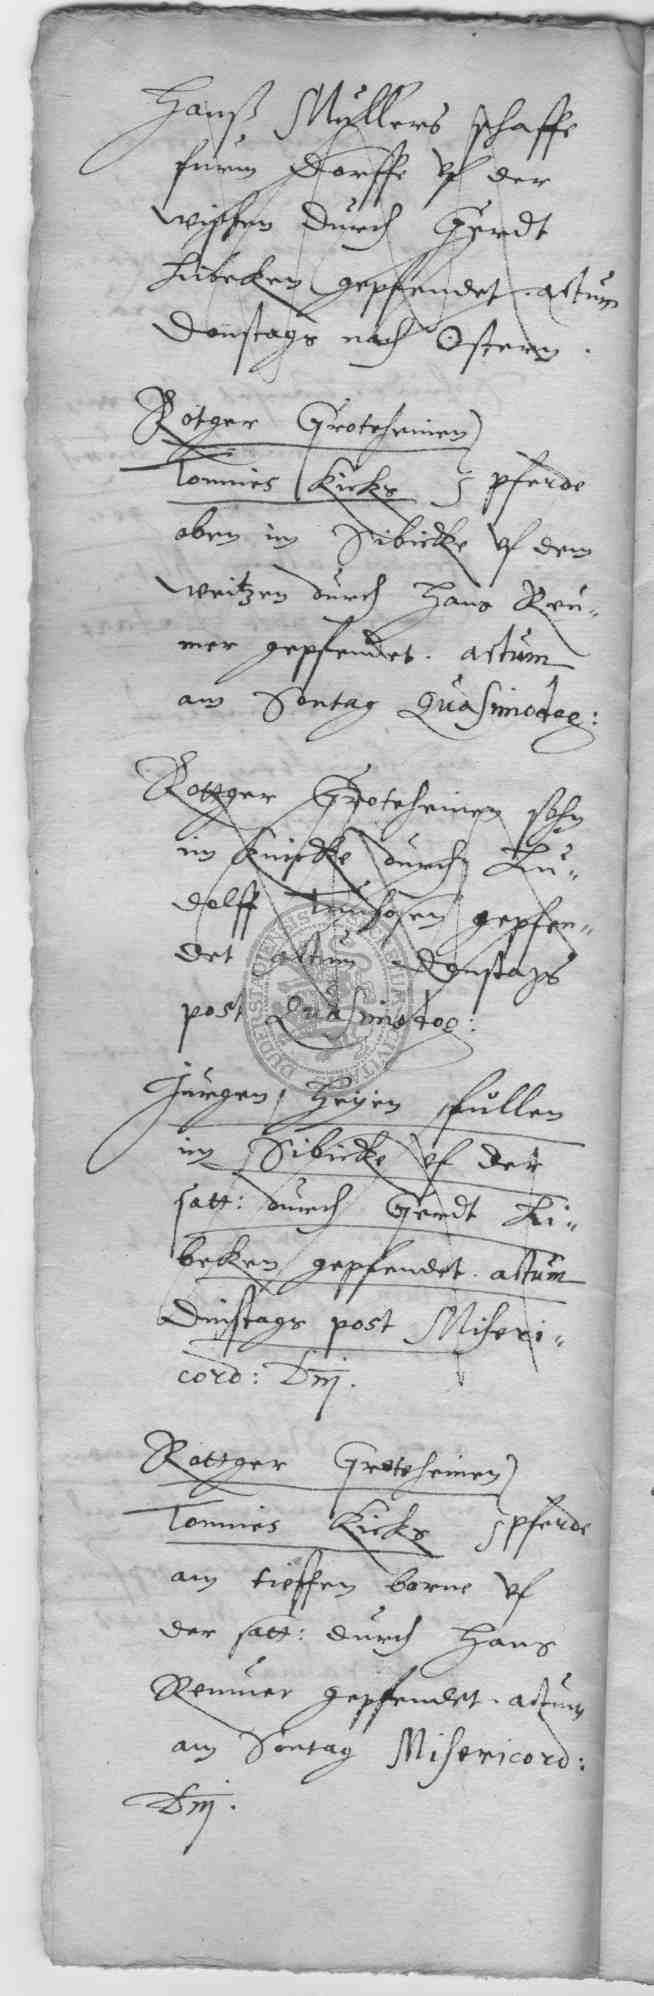 Hanß Müllers schaffe
furm Dorffe vf der
wissen durch Gerdt
Libeken gepfendet. actum
Donstags nach Ostern.
Rötger Groteheinen
Tonnies Kicks 5 pferde
oben im Sibicke vf dem
weitzen durch Hans Reu-
mer gepfendet. actum
am Sontag Quasimodog:
Rottger Groteheinen sohn
im Knicke durch Lu-
dolff gepfen-
det actum Donstags
post Quasimodog:
Jurgen Heyen fullen
im Sibicke vf der
satt: durch Gerdt Li-
beken gepfendet. actum
Dinstags post Miseri-
cord: Dnj.
Rottger Groteheinen
Tonnies Kicks 5 pferde
am tieffen borne vf
der satt: durch Hans
Reumer gepfendet. actum
am Sontag Misericord:
Dnj.